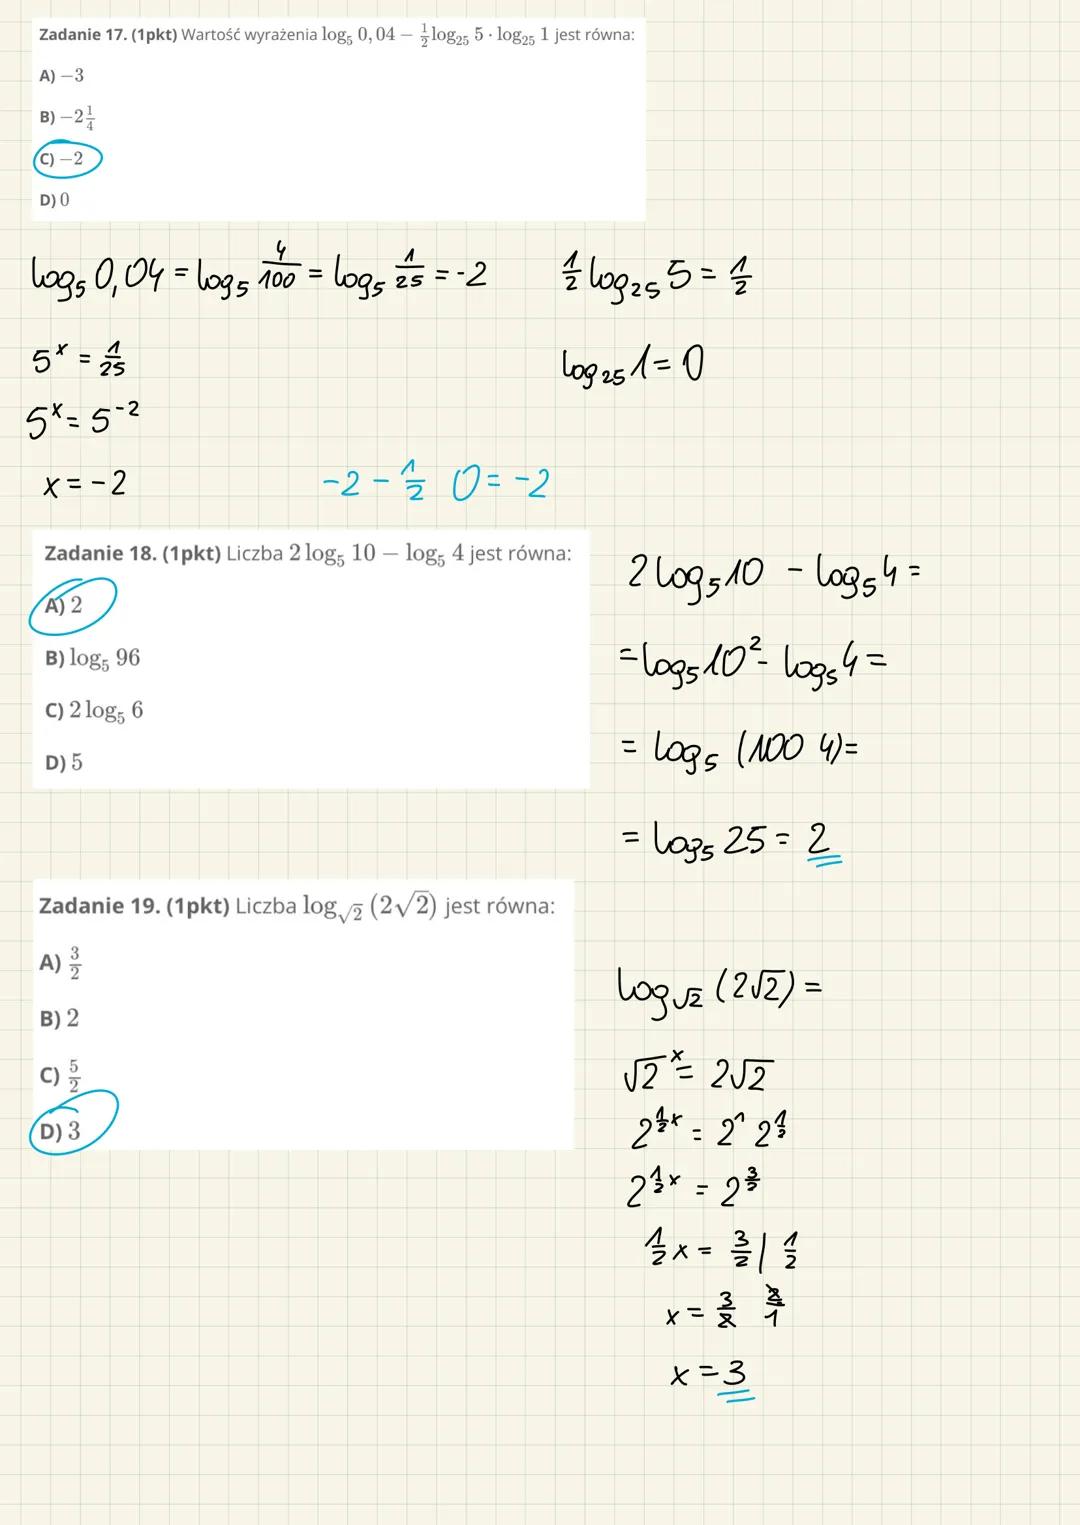 Zadanie 17. (1pkt) Wartość wyrażenia log₅ 0,04 − ½ log₂₅ 5 · log₂₅ 1 jest równa:
A) −3
B) −2¼
C) −2
D) 0
log₅ 0,04 = log₅ 4/100 = log₅ 1/25 = -2
½ log₂₅ 5 = ½
5ˣ = 1/25
log₂₅ 1 = 0
5ˣ = 5⁻²
x = -2
-2 - ½ 0 = -2
Zadanie 18. (1pkt) Liczba 2 log₅ 10 − log₅ 4 jest równa:
A) 2
B) log₅ 96
C) 2 log₅ 6
D) 5
2 log₅ 10 - log₅ 4 =
= log₅ 10² - log₅ 4 =
= log₅ (100 4) =
= log₅ 25 = 2
Zadanie 19. (1pkt) Liczba log_√2 (2√2) jest równa:
A) 3/2
B) 2
C) 5/2
D) 3
log_√2 (2√2) =
√2ˣ = 2√2
2^(½x) = 2¹ 2^(½)
2^(½x) = 2^(3/2)
½x = 3/2 | ½
x = 3/2 2/1
x = 3